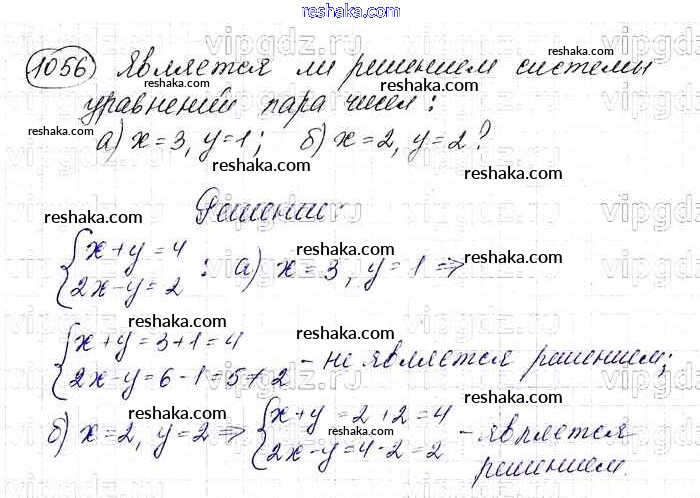 reshaka.com
1056) Является ли решением системы
уравнений пара чисел:
а) x=3, y=1; б) x=2, y=2?
Решение:
{x+y=4
{2x-y=2 : а) x=3, y=1 ⇒
{x+y=3+1=4
{2x-y=6-1=5≠2 - не является решением;
б) x=2, y=2 ⇒ {x+y=2+2=4
{2x-y=4-2=2 - является
решением.